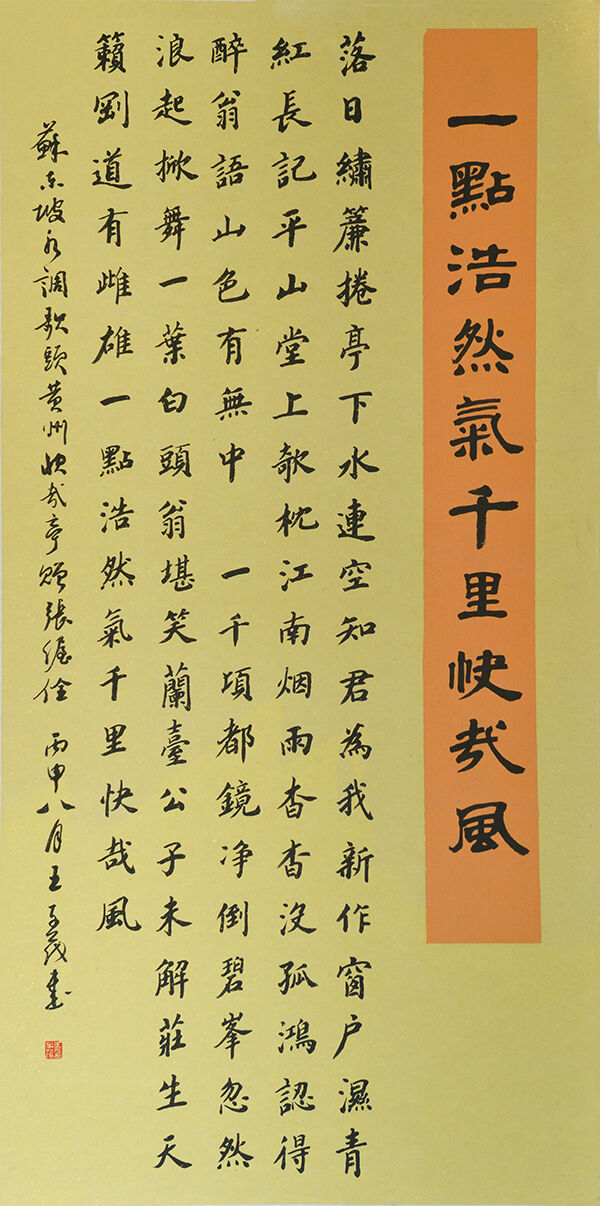 一點浩然氣千里快哉風
落日繡簾捲亭下水連空知君為我新作窗户濕青
紅長記平山堂上欹枕江南烟雨杳杳沒孤鴻認得
醉翁語山色有無中 一千頃都鏡净倒碧峯忽然
浪起掀舞一葉白頭翁堪笑蘭臺公子未解莊生天
籟剛道有雌雄一點浩然氣千里快哉風
蘇東坡水調歌頭黄州快哉亭贈張偓佺 丙申八月王子書